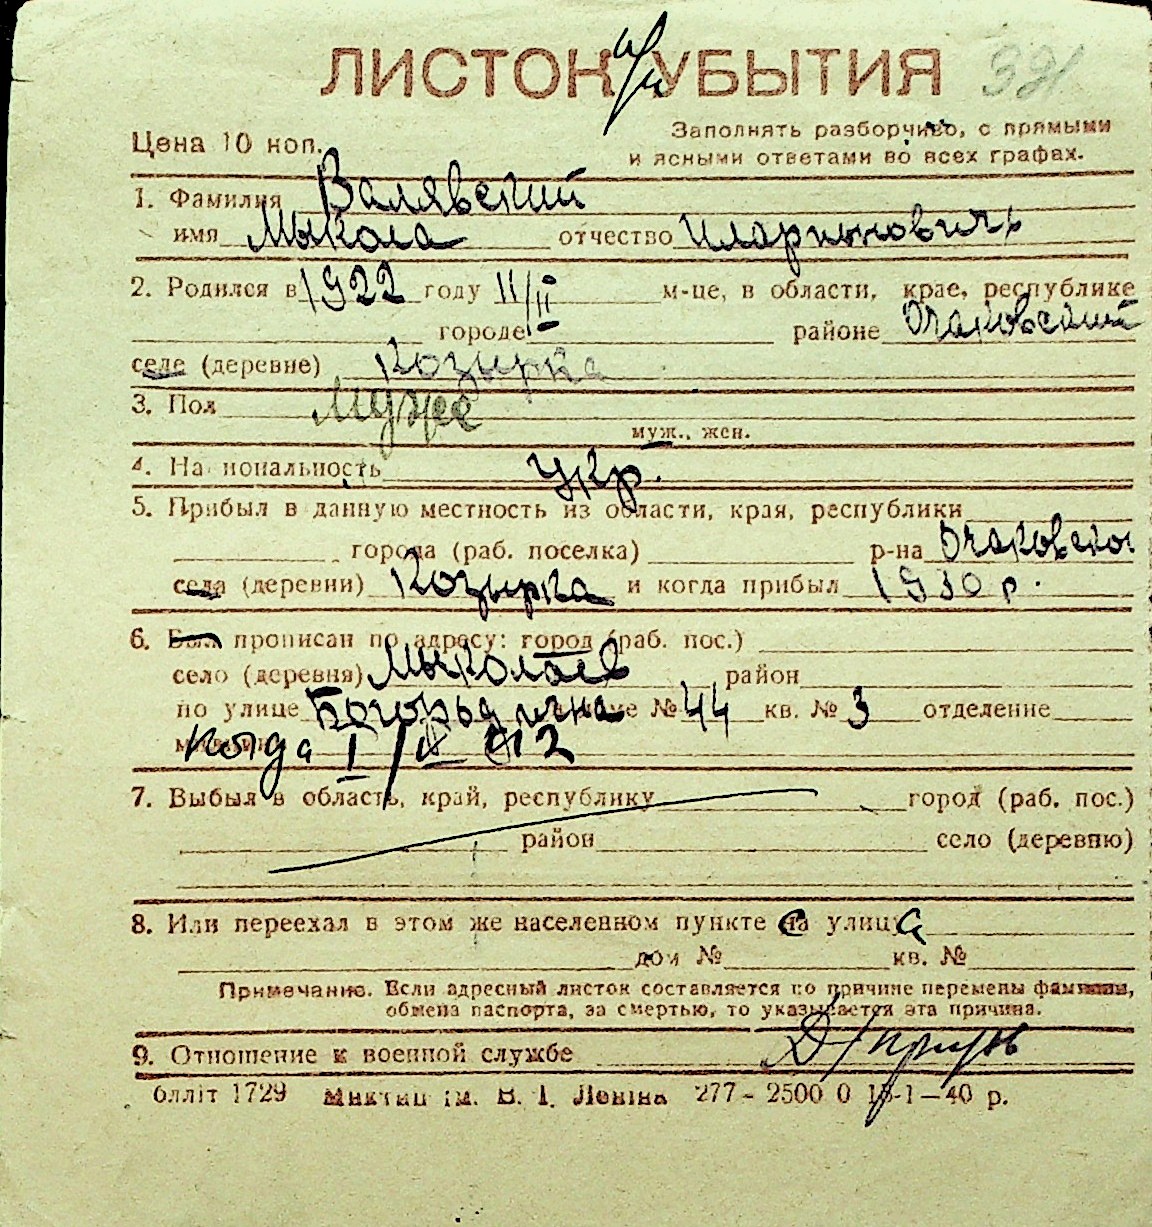 ЛИСТОК УБЫТИЯ
Цена 10 коп.
Заполнять разборчиво, с прямыми
и ясными ответами во всех графах.
1. Фамилия Валявский
имя Мыкола отчество Иларионович
2. Родился в 1922 году 11/II м-це, в области, крае, республике
городе районе Очаковский
селе (деревне) Козырка
3. Пол Муже
муж., жен.
4. На иональность укр.
5. Прибыл в данную местность из области, края, республики
города (раб. поселка) р-на Очаковског
села (деревни) Козырка и когда прибыл 1930 р.
6. Был прописан по адресу: город (раб. пос.)
село (деревня) Мыколаев район
по улице № 44 кв. № 3 отделение
Когда
7. Выбыл в область, край, республику город (раб. пос.)
район село (деревню)
8. Или переехал в этом же населенном пункте на улицу
дом № кв. №
Примечание. Если адресный листок составляется по причине перемены фамилии,
обмена паспорта, за смертью, то указывается эта причина.
9. Отношение к военной службе
блліт 1729 ім. В. І. Леніна 277 - 2500 0 15-1-40 р.